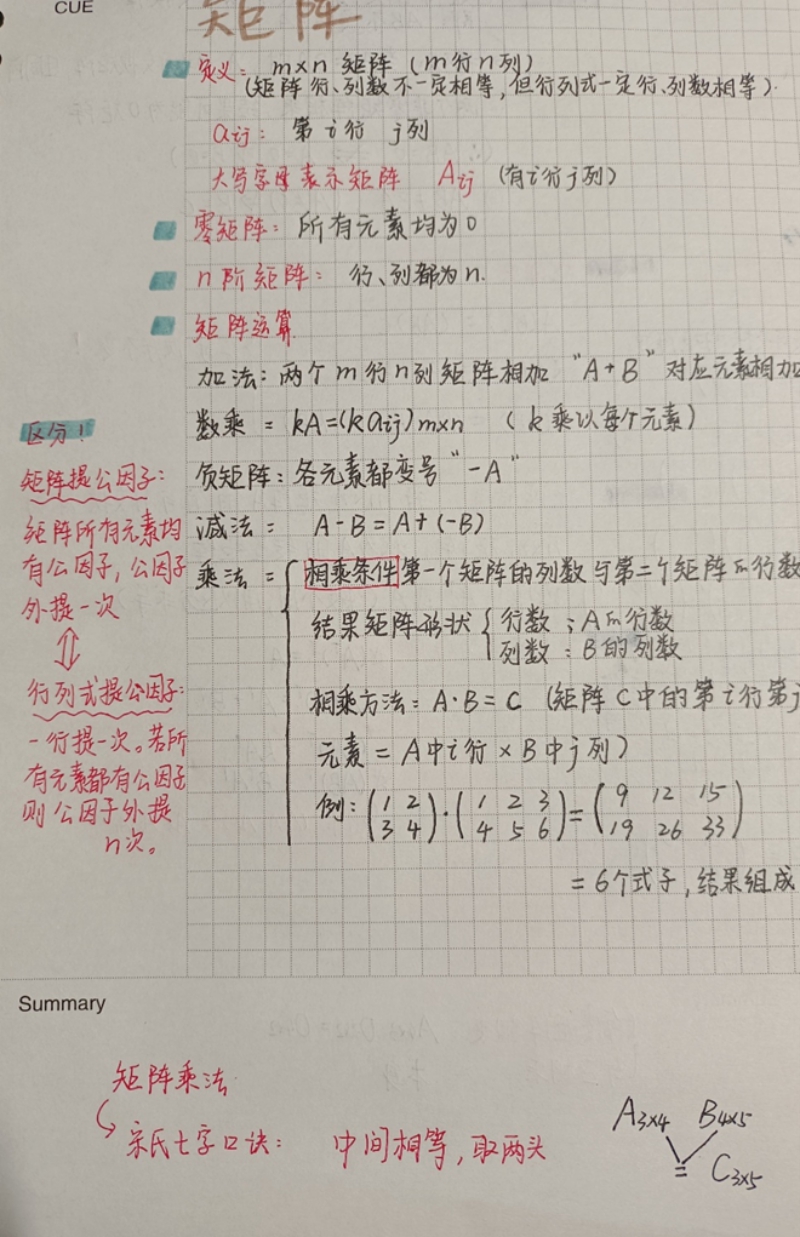 CUE
矩阵
定义：m×n 矩阵（m行n列）
（矩阵行、列数不一定相等，但行列式一定行、列数相等）.
aij：第i行 j列
大写字母表示矩阵 Aij （有i行j列）
零矩阵：所有元素均为0
n阶矩阵：行、列都为n.
矩阵运算
加法：两个m行n列矩阵相加 “A+B” 对应元素相加
数乘 = kA=(kaij)m×n （k乘以每个元素）
负矩阵：各元素都变号“-A”
减法 = A-B=A+(-B)
乘法 = { 相乘条件 第一个矩阵的列数与第二个矩阵的行数
结果矩阵形状 { 行数：A的行数
列数：B的列数
相乘方法：A·B=C （矩阵C中的第i行第j
元素 = A中i行 × B中j列）
例：(1 2 · (1 2 3 = (9 12 15
3 4) 4 5 6) 19 26 33)
= 6个式子，结果组成
区分！
矩阵提公因子：
矩阵所有元素均
有公因子，公因子
外提一次
⇕
行列式提公因子：
一行提一次。若所
有元素都有公因子
则公因子外提
n次。
Summary
矩阵乘法
宋氏七字口诀： 中间相等，取两头
A3×4 B4×5
= C3×5